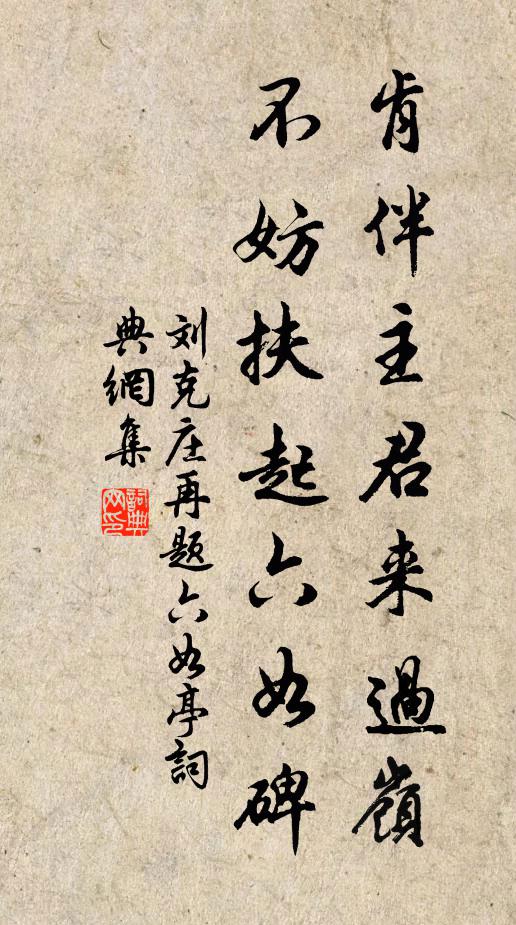 肯伴主君来過嶺
不妨扶起六如碑
刘克庄再题六如亭詞
典網集
詞典
网印